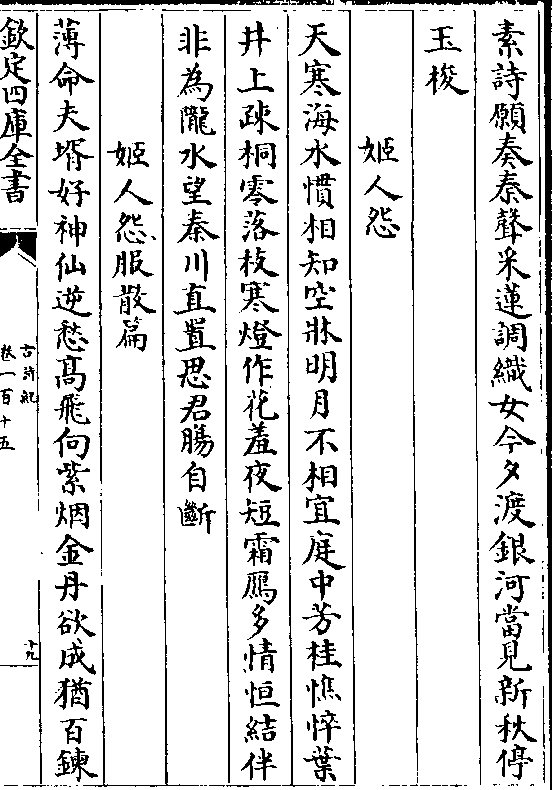 素詩願奏秦聲采蓮調織女今夕渡銀河當見新秋停
玉梭
姬人怨
天寒海水慣相知空牀明月不相宜庭中芳桂憔悴葉
井上疎桐零落枝寒燈作花羞夜短霜鴈多情恒結伴
非為隴水望秦川直置思君腸自斷
姬人怨服散篇
薄命夫壻好神仙逆愁髙飛向紫烟金丹欲成猶百鍊
欽定四庫全書
古詩紀
卷一百十五
十九